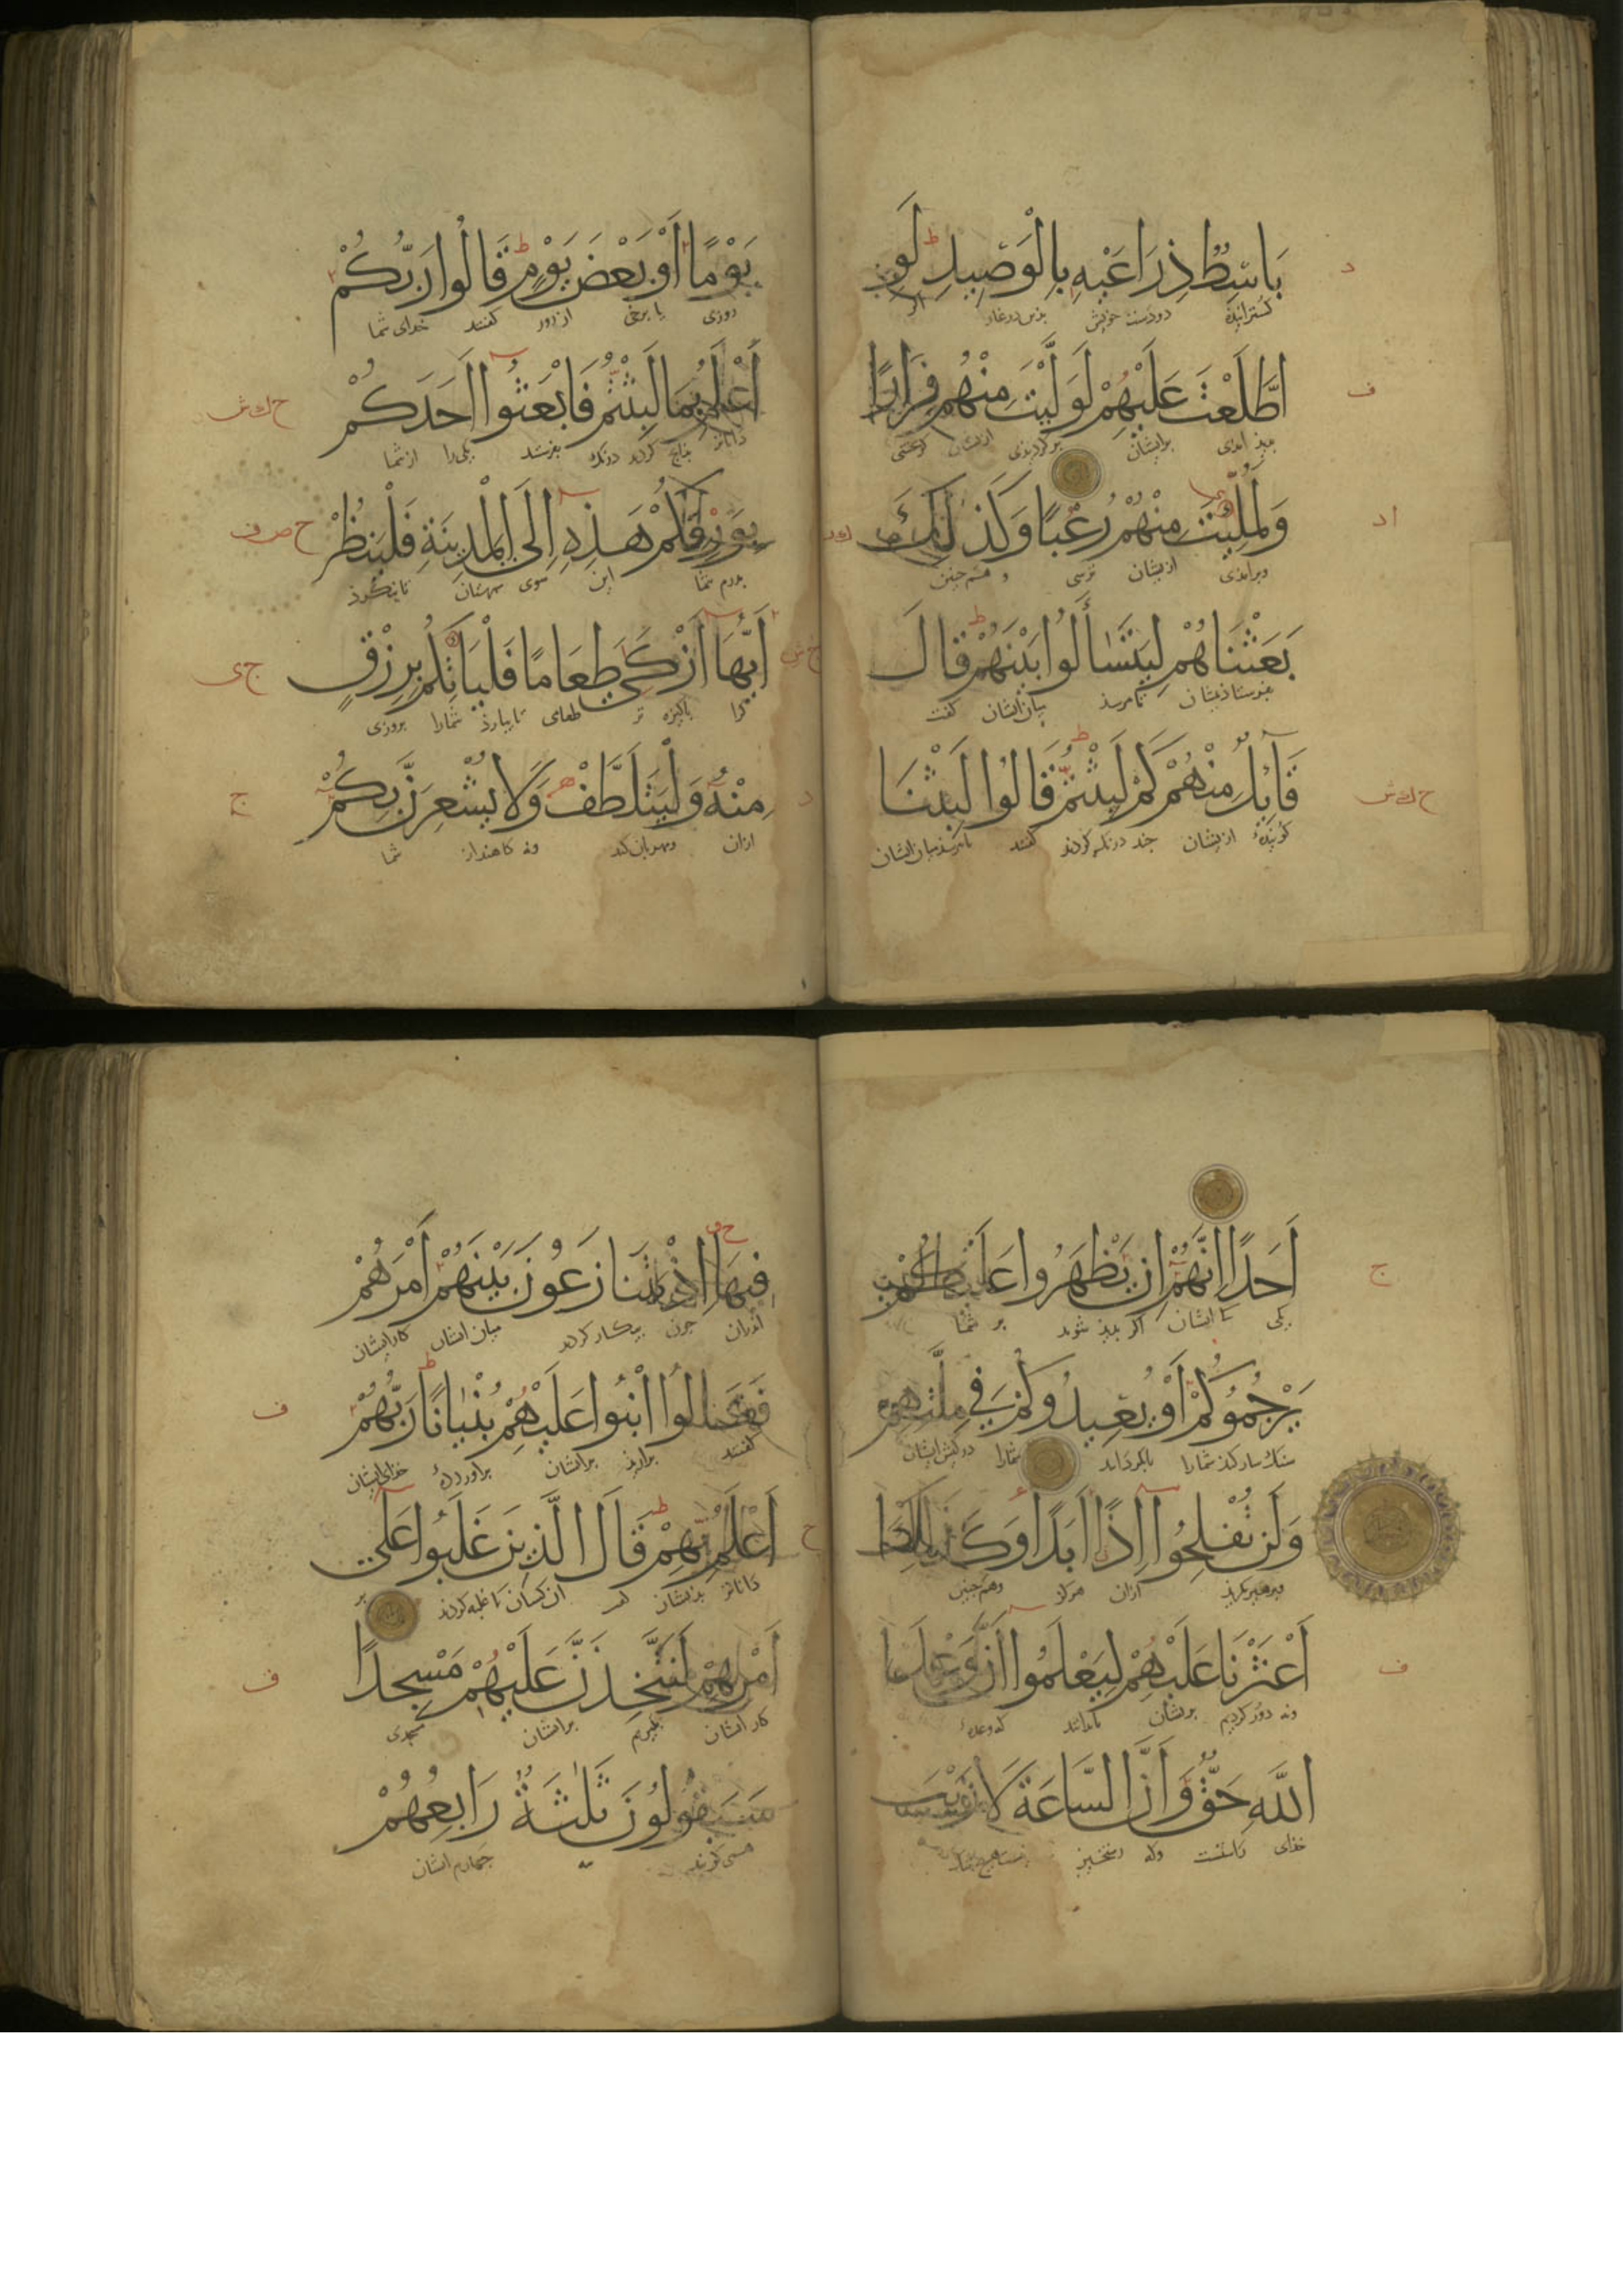 بَاسِطٌ ذِرَاعَيْهِ بِالْوَصِيدِ لَوِ
گسترانیده دو دست خویش بذین در غار اگر
اطَّلَعْتَ عَلَيْهِمْ لَوَلَّيْتَ مِنْهُمْ فِرَارًا
برایشان برگردیدی ازیشان
وَلَمُلِّيتَ مِنْهُمْ رُعْبًا وَكَذٰلِكَ
ازیشان ترسی و همچنین
بَعَثْنَاهُمْ لِيَتَسَاءَلُوا بَيْنَهُمْ قَالَ
تا پرسند میان ایشان گفت
قَائِلٌ مِنْهُمْ كَمْ لَبِثْتُمْ قَالُوا لَبِثْنَا
گوینده ازیشان چند درنگ کردند گفتند
يَوْمًا أَوْ بَعْضَ يَوْمٍ قَالُوا رَبُّكُمْ
روزی یا برخی از روز گفتند خدای شما
أَعْلَمُ بِمَا لَبِثْتُمْ فَابْعَثُوا أَحَدَكُمْ
داناتر بذانچ کردید درنگ بفرستید یکی را از شما
بِوَرِقِكُمْ هَـذِهِ إِلَى الْمَدِينَةِ فَلْيَنْظُرْ
بدرم شما این سوی شهرستان تا بنگرذ
أَيُّهَا أَزْكَى طَعَامًا فَلْيَأْتِكُمْ بِرِزْقٍ
کرا پاکیزه تر طعامی تا بیارذ شما را بروزی
مِنْهُ وَلْيَتَلَطَّفْ وَلَا يُشْعِرَنَّ بِكُمْ
ازان ومهربان کند شما
أَحَدًا إِنَّهُمْ إِنْ يَظْهَرُوا عَلَيْكُمْ
یکی کایشان اگر پدید شوند بر شما
يَرْجُمُوكُمْ أَوْ يُعِيدُوكُمْ فِي مِلَّتِهِمْ
سنگسار کنند شما را شما را در کیش ایشان
وَلَنْ تُفْلِحُوا إِذًا أَبَدًا وَكَذَلِكَ
ازان هرگز وهمچنین
أَعْثَرْنَا عَلَيْهِمْ لِيَعْلَمُوا أَنَّ وَعْدَ
دور کردیم بریشان تا بدانند که وعده
اللَّهِ حَقٌّ وَأَنَّ السَّاعَةَ لَا رَيْبَ
خدای راستست وکه رستخیز
فِيهَا إِذْ يَتَنَازَعُونَ بَيْنَهُمْ أَمْرَهُمْ
اندران چون پیکار کردند میان ایشان کار ایشان
فَقَالُوا ابْنُوا عَلَيْهِمْ بُنْيَانًا رَبُّهُمْ
گفتند برارید برایشان خدای ایشان
أَعْلَمُ بِهِمْ قَالَ الَّذِينَ غَلَبُوا عَلَى
داناتر بذیشان گفت آن کسان کا غلبه کردند بر
أَمْرِهِمْ لَنَتَّخِذَنَّ عَلَيْهِمْ مَسْجِدًا
کار ایشان بگیریم برایشان مسجدی
سَيَقُولُونَ ثَلٰثَةٌ رَابِعُهُمْ
چهارم ایشان